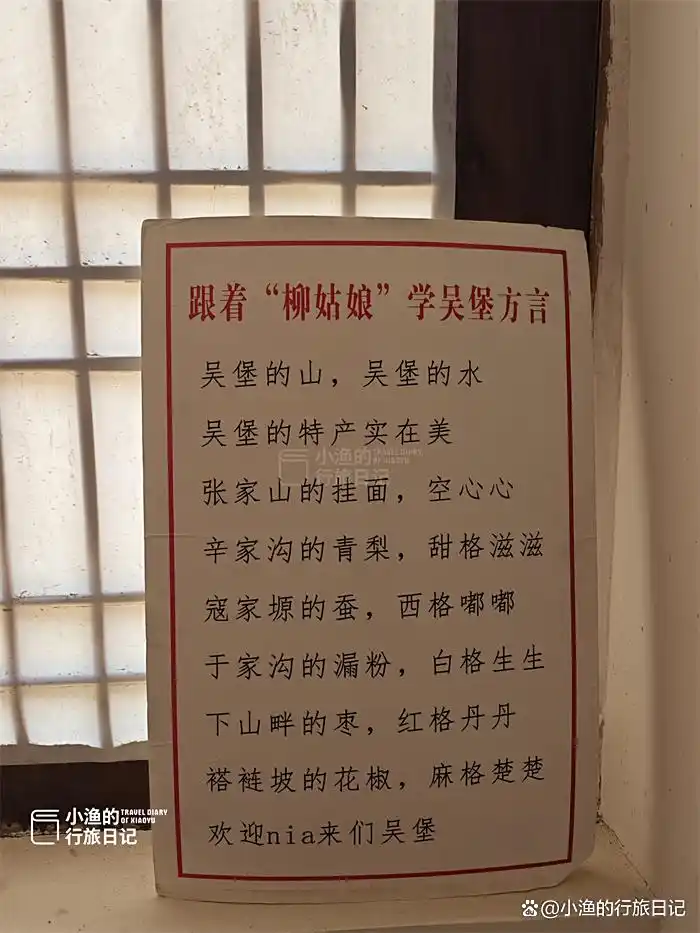 跟着“柳姑娘”学吴堡方言
吴堡的山，吴堡的水
吴堡的特产实在美
张家山的挂面，空心心
辛家沟的青梨，甜格滋滋
寇家塬的蚕，西格嘟嘟
于家沟的漏粉，白格生生
下山畔的枣，红格丹丹
褡裢坡的花椒，麻格楚楚
欢迎nia来们吴堡
小渔的 TRAVEL DIARY OF XIAOYU
行旅日记
小渔的 TRAVEL DIARY OF XIAOYU
行旅日记
@小渔的行旅日记